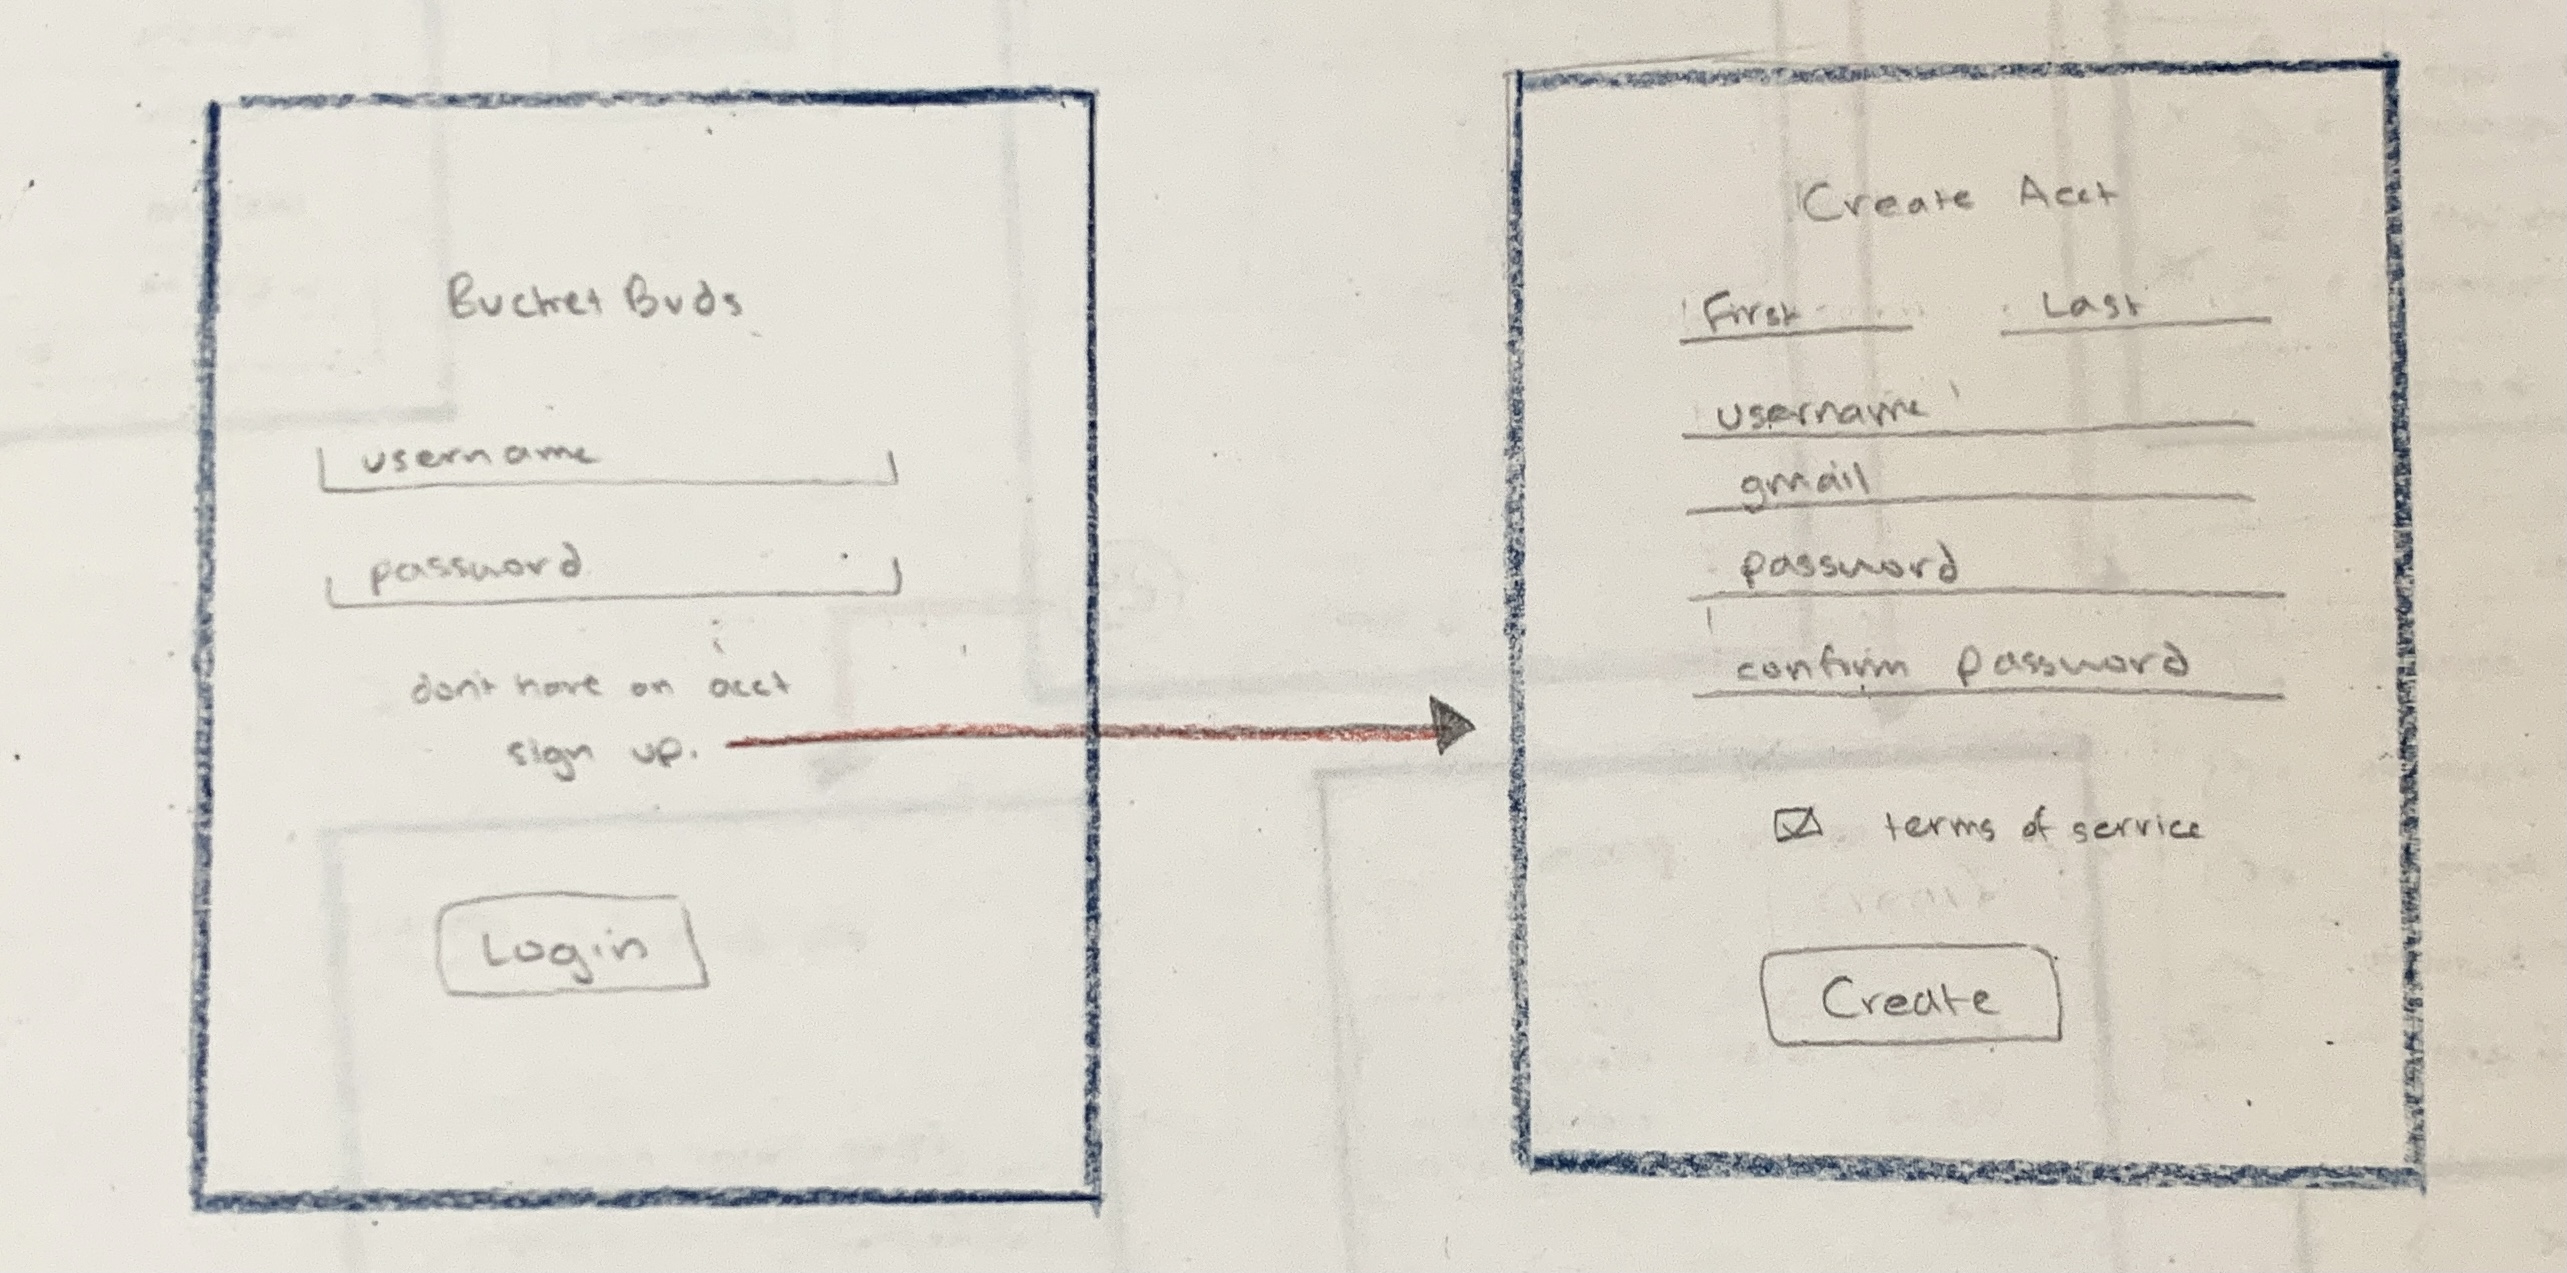 Bucket Buds
username
password
don't have an acct
sign up.
Login
Create Acct
First Last
username
gmail
password
confirm password
terms of service
Create